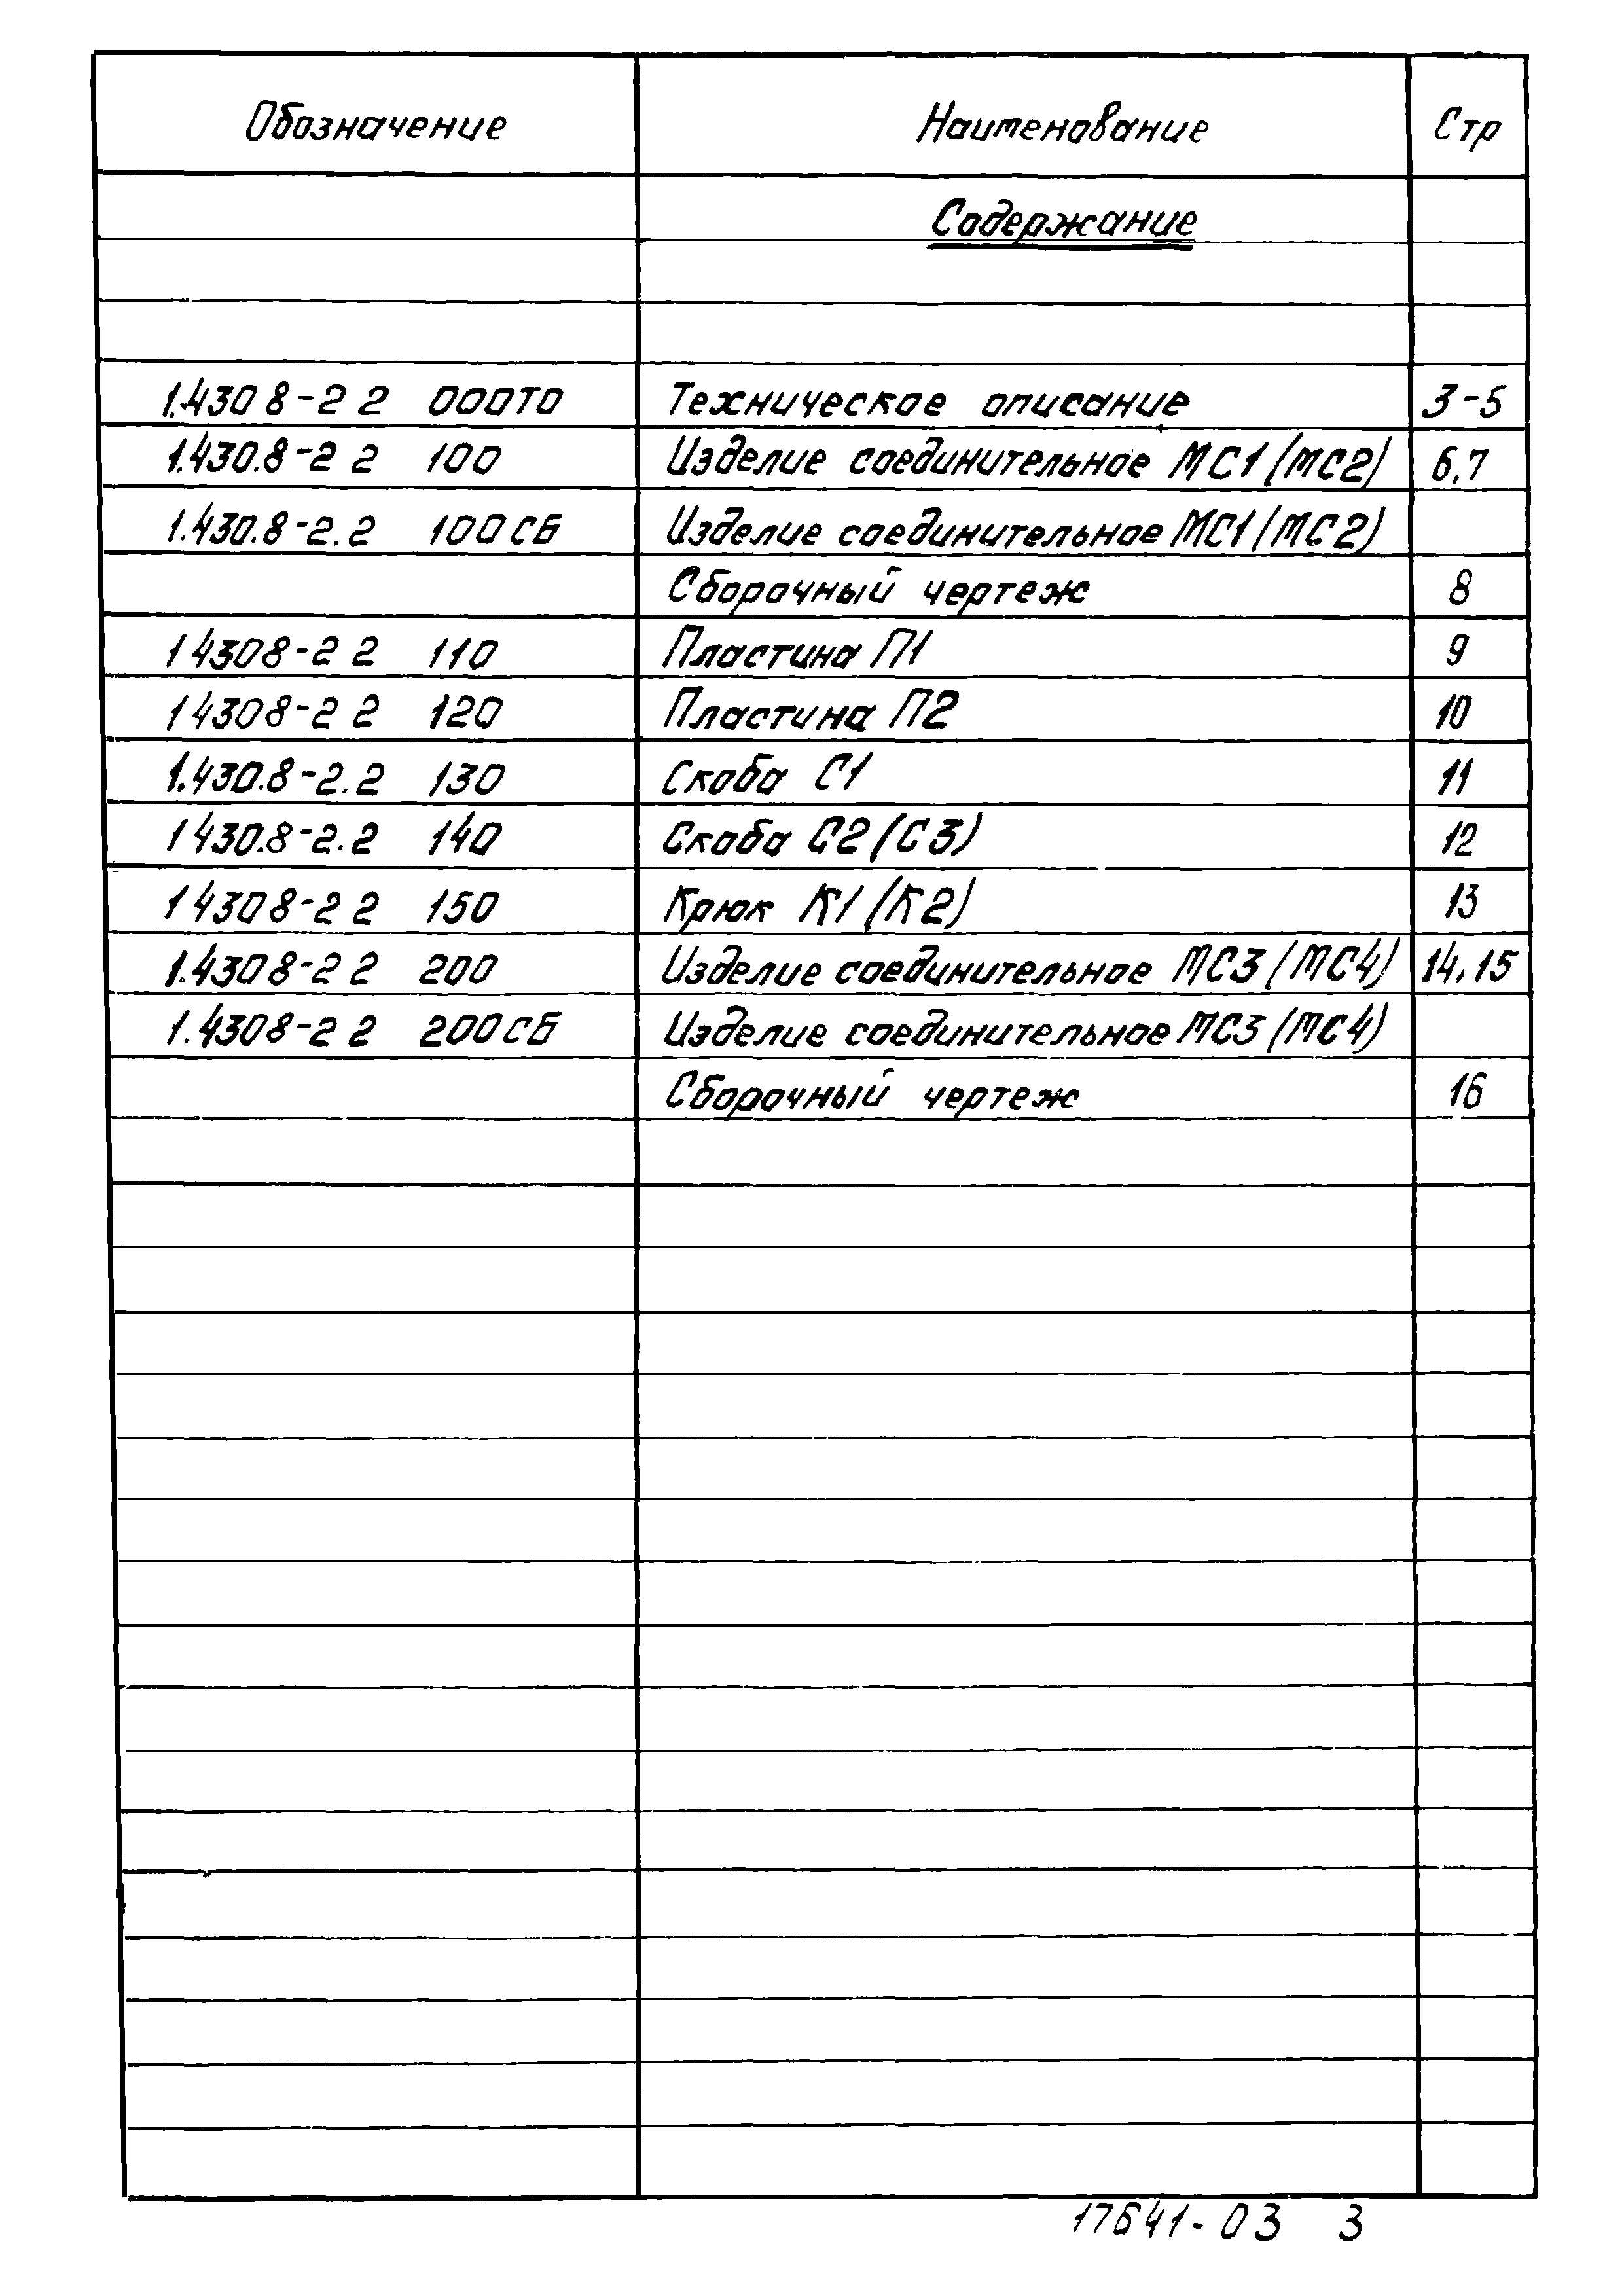 Обозначение Наименование Стр
Содержание
1.430 8-2 2 000ТО Техническое описание 3-5
1.430.8-2 2 100 Изделие соединительное МС1 (МС2) 6,7
1.430.8-2.2 100СБ Изделие соединительное МС1 (МС2)
Сборочный чертеж 8
1 4308-2 2 110 Пластина П1 9
1 4308-2 2 120 Пластина П2 10
1.430.8-2.2 130 Скоба С1 11
1 430.8-2.2 140 Скоба С2 (С3) 12
1 4308-2 2 150 Крюк К1 (К2) 13
1.4308-2 2 200 Изделие соединительное МС3 (МС4) 14,15
1.4308-2 2 200СБ Изделие соединительное МС3 (МС4)
Сборочный чертеж 16
17641-03 3